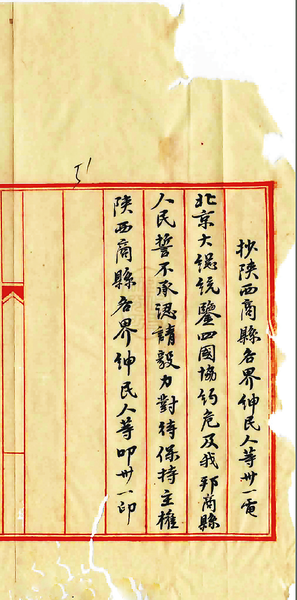 抄陝西商縣各界紳民人等卅一電
北京大總統鑒四國協約危及我邦商縣
人民誓不承認請毅力對待保持主權
陝西商縣各界紳民人等叩卅一印